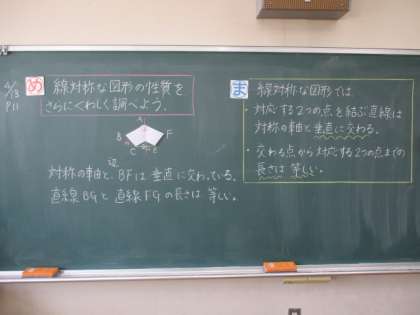 4/13
P11
め
線対称な図形の性質を
さらにくわしく調べよう。
A
B
F
C
E
辺
対称の軸と、BFは垂直に交わっている。
直線BGと直線FGの長さは等しい。
ま
線対称な図形では、
・対応する2つの点を結ぶ直線は
対称の軸と垂直に交わる。
・交わる点から対応する2つの点までの
長さは等しい。